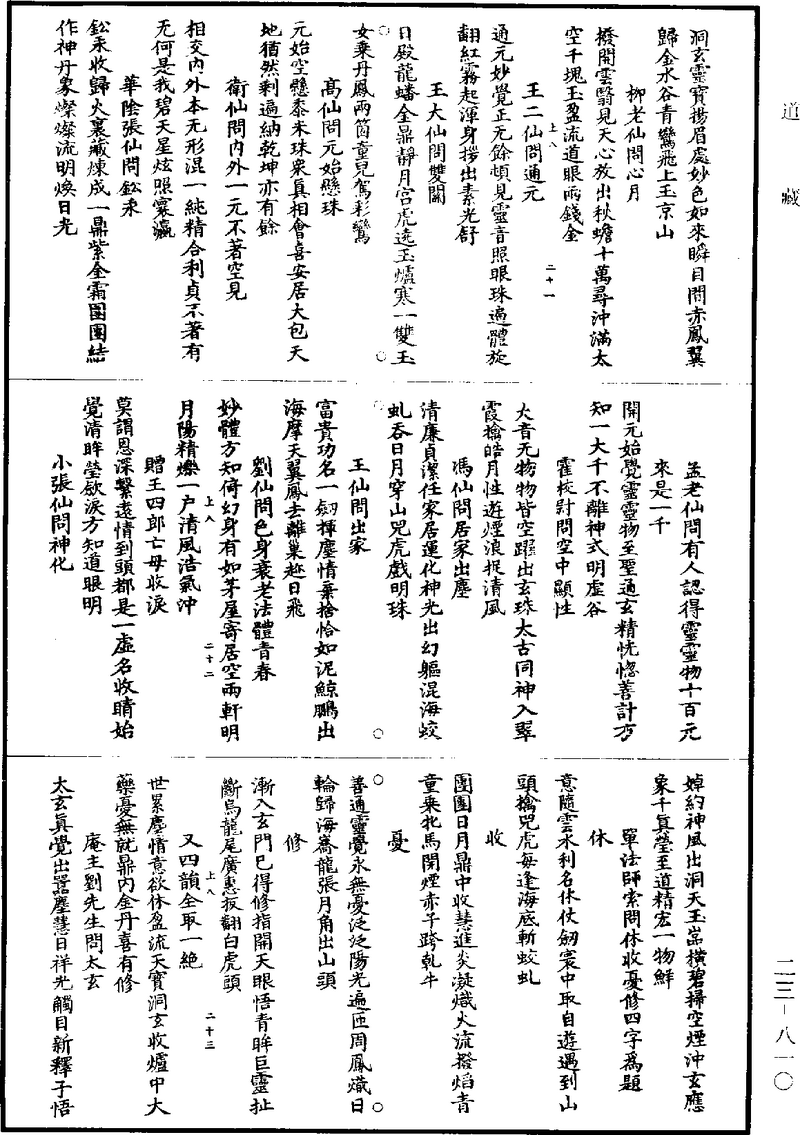 道藏
洞玄靈寶揚眉處妙色如來瞬目間赤鳳翼
歸金水谷青鸞飛上玉京山
柳老仙問心月
撥開雲翳見天心放出秋蟾十萬尋沖滿太
空千塊玉盈流道眼兩錢金
王二仙問通元
上八
二十一
通元妙覺正无餘頓見靈音照眼珠遍體旋
翻紅霧起渾身拶出素光舒
王大仙問雙關
日殿龍蟠金鼎靜月宮虎遶玉爐寒一雙玉
女乘丹鳳兩箇童兒駕彩鸞
高仙問元始懸珠
元始空懸黍米珠衆真相會喜安居大包天
地猶然剩遍納乾坤亦有餘
衛仙問內外一元不著空見
相交內外本无形混一純精合利貞不著有
无何是我碧天星炫照寰瀛
華陰張仙問鈆汞
鈆汞收歸火裏藏煉成一鼎紫金霜團團結
作神丹象燦燦流明煥日光
孟老仙問有人認得靈靈物十百元
來是一千
開元始覺靈靈物至聖通玄精恍惚善計方
知一大千不離神式明虛谷
霍校尉問空中顯性
大音无物物皆空躍出玄珠太古同神入翠
霞擒皓月性遊煙浪捉清風
馮仙問居家出塵
清廉貞潔任家居運化神光出幻軀混海蛟
虬吞日月穿山兕虎戲明珠
王仙問出家
富貴功名一劔揮塵情棄捨恰如泥鯨鵬出
海摩天翼鳳去離巢趂日飛
劉仙問色身衰老法體青春
妙體方知倚幻身有如茅屋寄居空兩軒明
上八
二十二
月陽精爍一户清風浩氣沖
贈王四郎亡母收淚
莫謂恩深繫遠情到頭都是一虛名收睛始
覺清眸瑩歛淚方知道眼明
小張仙問神化
婥約神風出洞天玉嵓橫碧掃空煙沖玄應
象千真瑩至道精宏一物鮮
單法師索問休收憂修四字爲題
休
意隨雲水利名休仗劔寰中取自遊遇到山
頭擒兕虎每逢海底斬蛟虬
收
團團日月鼎中收慧進炎凝熾火流撥焰青
童乘牝馬開煙赤子跨乹牛
憂
善通靈覺永無憂泛泛陽光遍匝周鳳熾日
輪歸海嶠龍張月角出山頭
修
漸入玄門巳得修指開天眼悟青眸巨靈扯
斷烏龍尾廣惠扳翻白虎頭
上八
二十三
又四韻全取一絶
世累塵情意欲休盈流天寶洞玄收爐中大
藥憂無就鼎內金丹喜有修
庵主劉先生問太玄
太玄真覺出嚣塵慧日祥光觸目新釋子悟
二三－八一〇